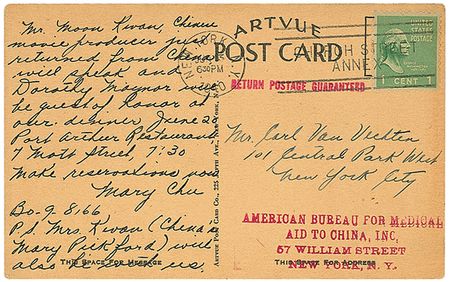 Mr. Moon Kwan, Chinese
movie producer, just
returned from China,
will speak and
Dorothy Maynor will
be guest of honor at
our dinner June 20
Port Arthur Restaurant
7 Mott Street, 7:30
Make reservations now
Mary Chu
Bo-9-8166
P.S. Mrs. Kwan (China's
Mary Pickford) will
also be with us.
THIS SPACE FOR MESSAGE
ARTVUE
POST CARD
NEW YORK, N.Y.
630 PM
CHURCH STREET
ANNEX
UNITED STATES
POSTAGE
1 CENT 1
RETURN POSTAGE GUARANTEED
Artvue Post Card Co., 225 Fifth Ave., New York
Mr. Carl Van Vechten
101 Central Park West
New York City
AMERICAN BUREAU FOR MEDICAL
AID TO CHINA, INC.
57 WILLIAM STREET
NEW YORK, N. Y.
THIS SPACE FOR ADDRESS